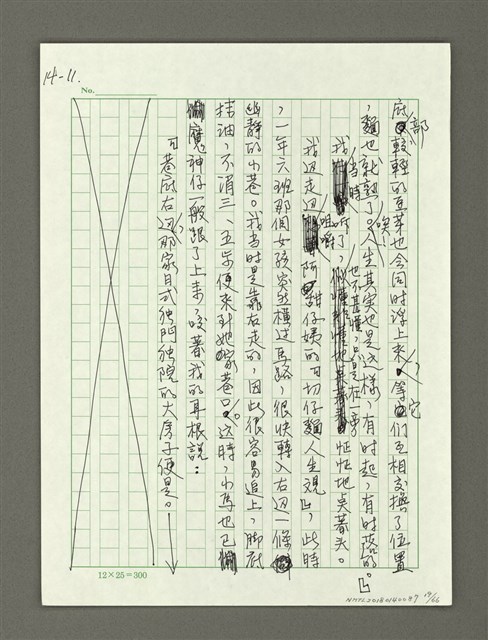 14-11.
No.
底部較輕的豆芽也会同时浮上来，等它们互相交換了位置
，麵也就熟了。唉！人生其实也是这樣，有时起，有时落的。」
我当時听了，也不甚懂，只是在一旁怔怔地点着头。
我边走边咀嚼阿甜仔姨的「切仔麵人生观」，此時
，一年六班那個女孩突然橫过馬路，很快轉入右边一條
幽静的小巷。我当时是靠右走的，因此很容易追上，脚底
抹油，不消三、五步便来到她家巷口。这時，小馬也已
魔神仔一般跟了上来，咬着我的耳根說：
「巷底右边那家日式独門独院的大房子便是。
12×25=300
NMTL20180140087 14/66